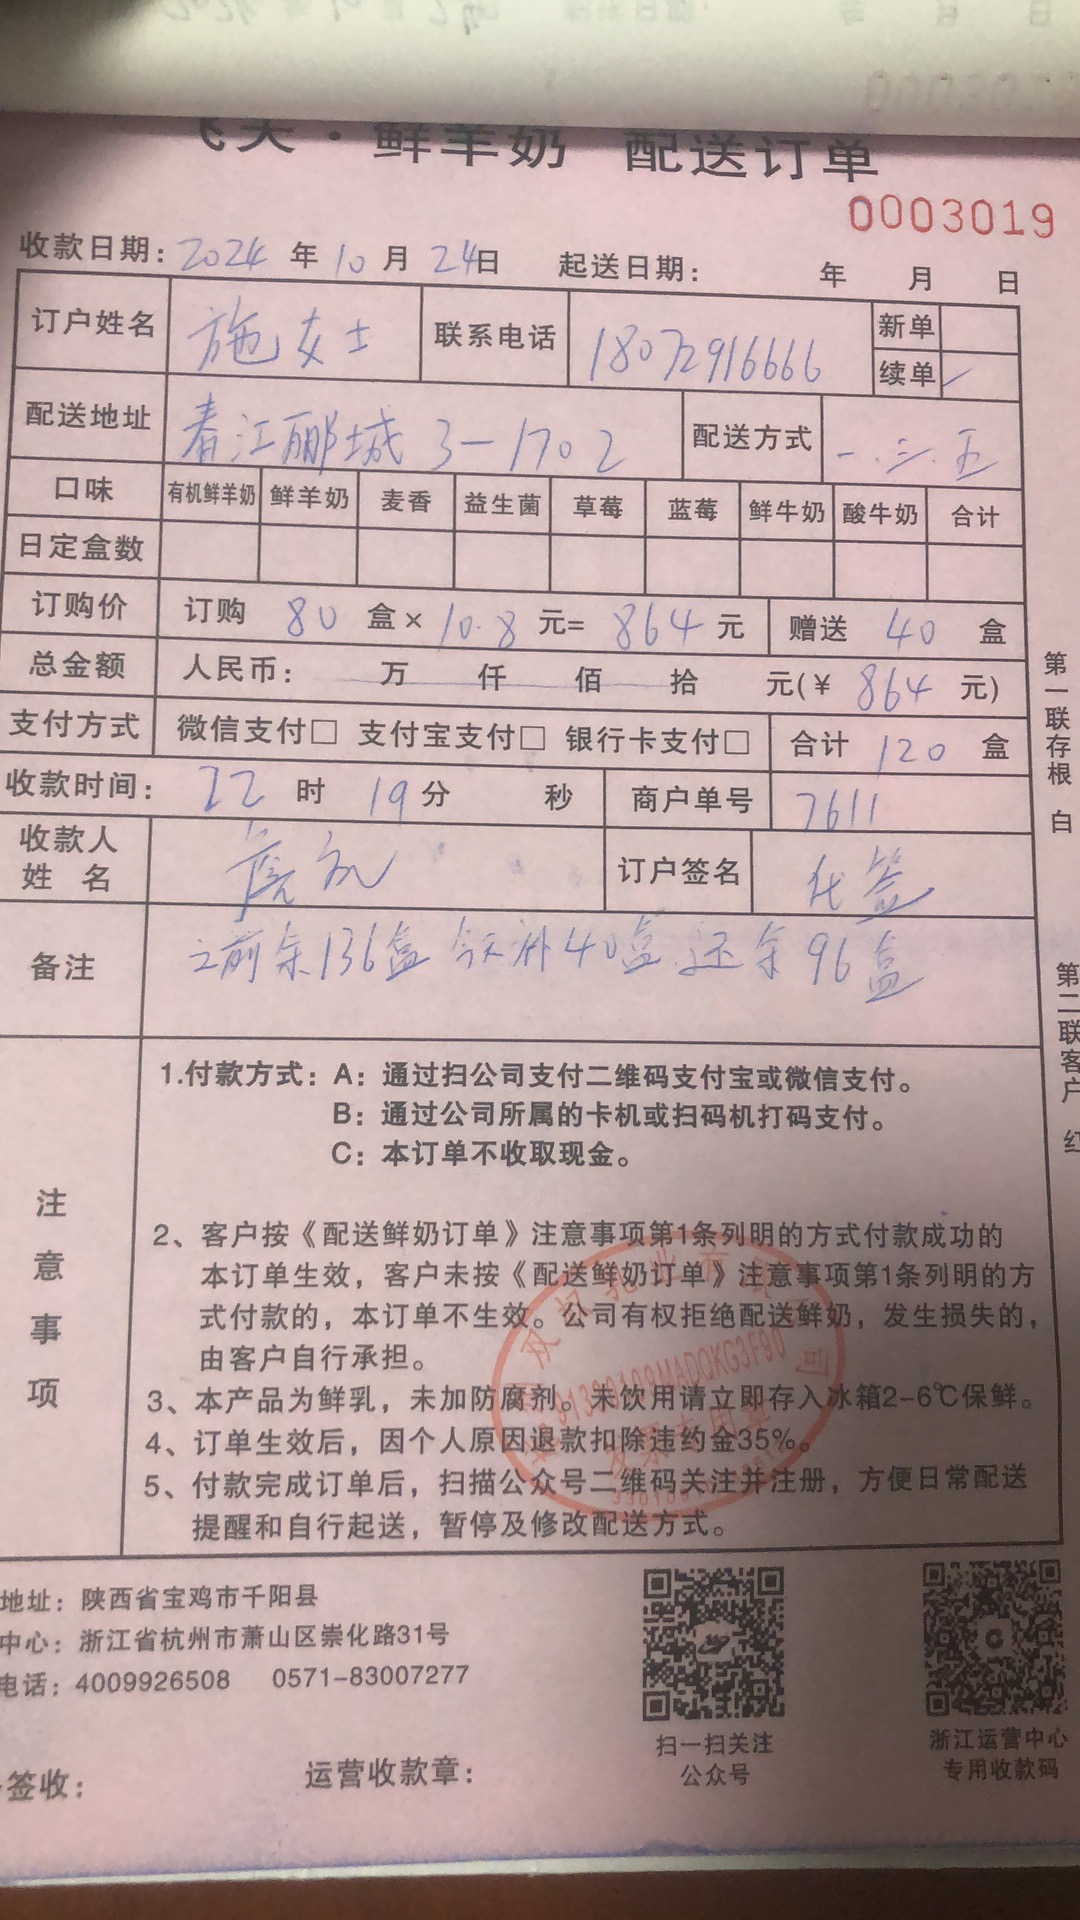 飞天·鲜羊奶 配送订单
0003019
收款日期: 2024 年 10 月 24日 起送日期: 年 月 日
订户姓名 施女士 联系电话 18072916666 新单
续单 ✓
配送地址 春江郦城 3-1702 配送方式 一.三.五
口味 有机鲜羊奶 鲜羊奶 麦香 益生菌 草莓 蓝莓 鲜牛奶 酸牛奶 合计
日定盒数
订购价 订购 80 盒× 10.8 元= 864 元 赠送 40 盒
总金额 人民币: 万 仟 佰 拾 元(¥ 864 元)
支付方式 微信支付□ 支付宝支付□ 银行卡支付□ 合计 120 盒
收款时间: 22 时 19 分 秒 商户单号 7611
收款人
姓 名 订户签名 代签
备注 之前余136盒 今天补40盒 还余96盒
注意事项
1.付款方式: A: 通过扫公司支付二维码支付宝或微信支付。
B: 通过公司所属的卡机或扫码机打码支付。
C: 本订单不收取现金。
2、客户按《配送鲜奶订单》注意事项第1条列明的方式付款成功的
本订单生效，客户未按《配送鲜奶订单》注意事项第1条列明的方
式付款的，本订单不生效。公司有权拒绝配送鲜奶，发生损失的，
由客户自行承担。
3、本产品为鲜乳，未加防腐剂。未饮用请立即存入冰箱2-6℃保鲜。
4、订单生效后，因个人原因退款扣除违约金35%。
5、付款完成订单后，扫描公众号二维码关注并注册，方便日常配送
提醒和自行起送，暂停及修改配送方式。
第一联存根 白
第二联客户 红
地址: 陕西省宝鸡市千阳县
中心: 浙江省杭州市萧山区崇化路31号
电话: 4009926508 0571-83007277
扫一扫关注
公众号
浙江运营中心
专用收款码
签收: 运营收款章: